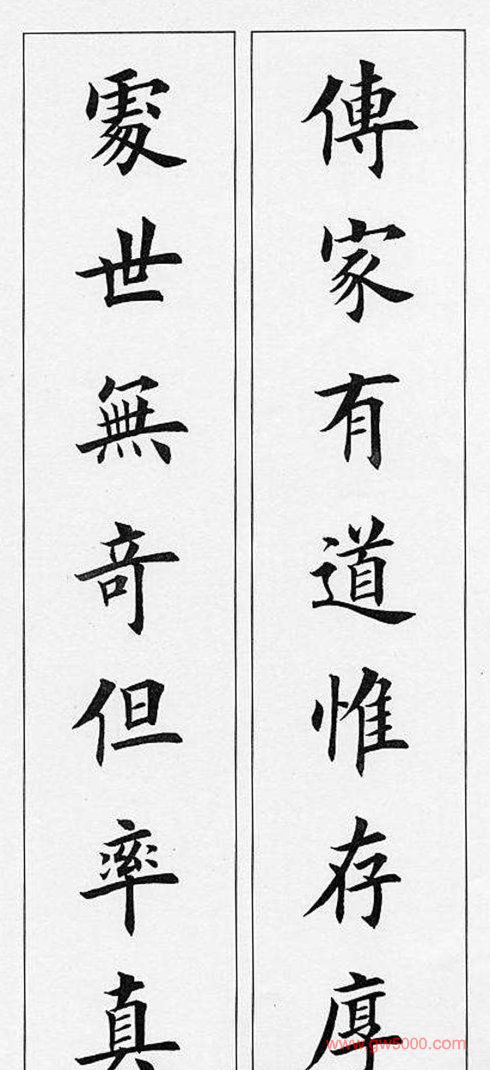 傳家有道惟存厚
處世無奇但率真
www.gw5000.com